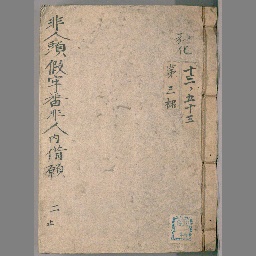 十二ノ五十三
弘化
第三拾
非人頭假牢番非人内借願
二止